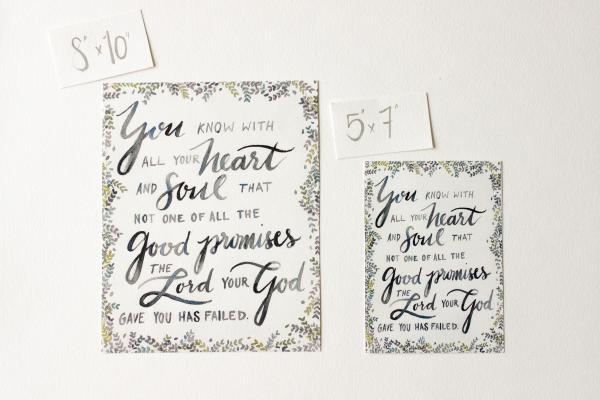 8" x 10"
You KNOW WITH
ALL YOUR heart
AND Soul THAT
NOT ONE OF ALL THE
Good promises
THE
Lord YOUR God
GAVE YOU HAS FAILED.
5" x 7"
You KNOW WITH
ALL YOUR heart
AND Soul THAT
NOT ONE OF ALL THE
Good promises
THE
Lord YOUR God
GAVE YOU HAS FAILED.